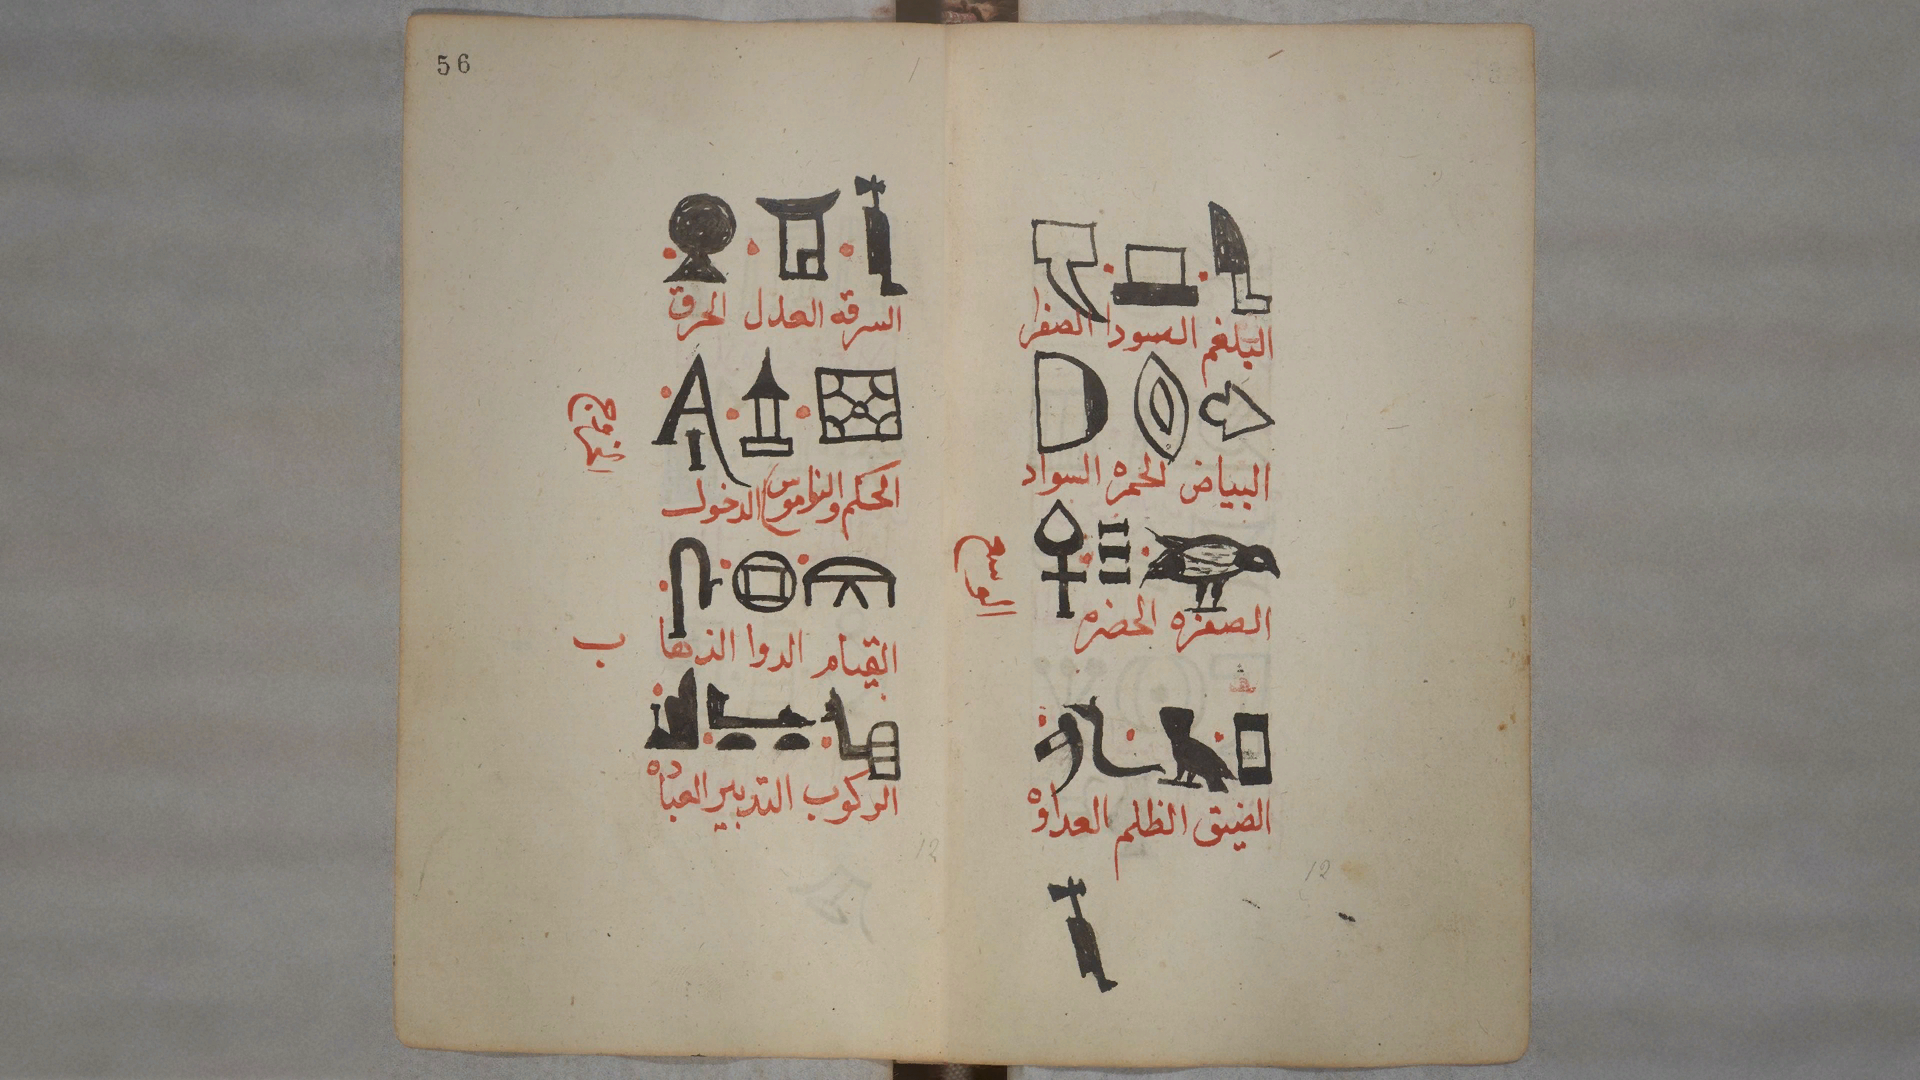 البلغم السودا الصفرا
البياض الحمره السواد
الصفره الحضره
الضيق الظلم العداوه
12
56
السرقه العدل الحرق
الحكم والناموس الدخول
القيام الدوا الذها
ب
الركوب التدبير العباده
12